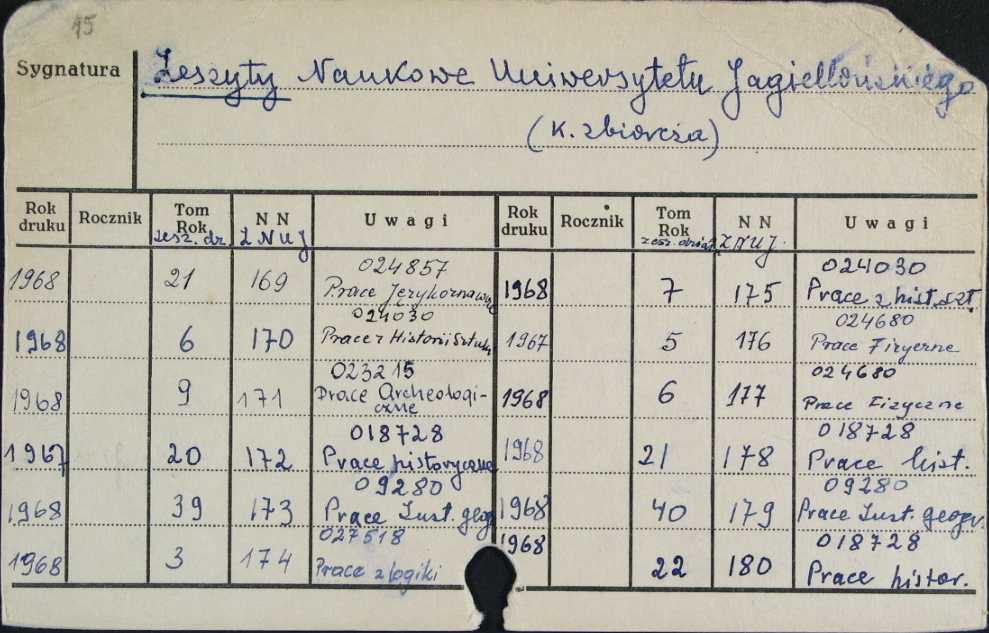 15
Sygnatura
Zeszyty Naukowe Uniwersytetu Jagiellońskiego
(k. zbiorcza)
Rok druku Rocznik Tom Rok zesz. dz. NN ZNUJ Uwagi Rok druku Rocznik Tom Rok zesz. dział. NN ZNUJ. Uwagi
024857 024030
1968 21 169 Prace Językoznawcze 1968 7 175 Prace z hist. szt.
024030 024680
1968 6 170 Prace z Historii Sztuki 1967 5 176 Prace Fizyczne
023215 024680
1968 9 171 Prace Archeologi- 1968 6 177 Prace Fizyczne
czne
018728 018728
1967 20 172 Prace historyczne 1968 21 178 Prace hist.
09280 09280
1968 39 173 Prace Inst. geog. 1968 40 179 Prace Inst. geogr.
027518 018728
1968 3 174 Prace z logiki 1968 22 180 Prace histor.